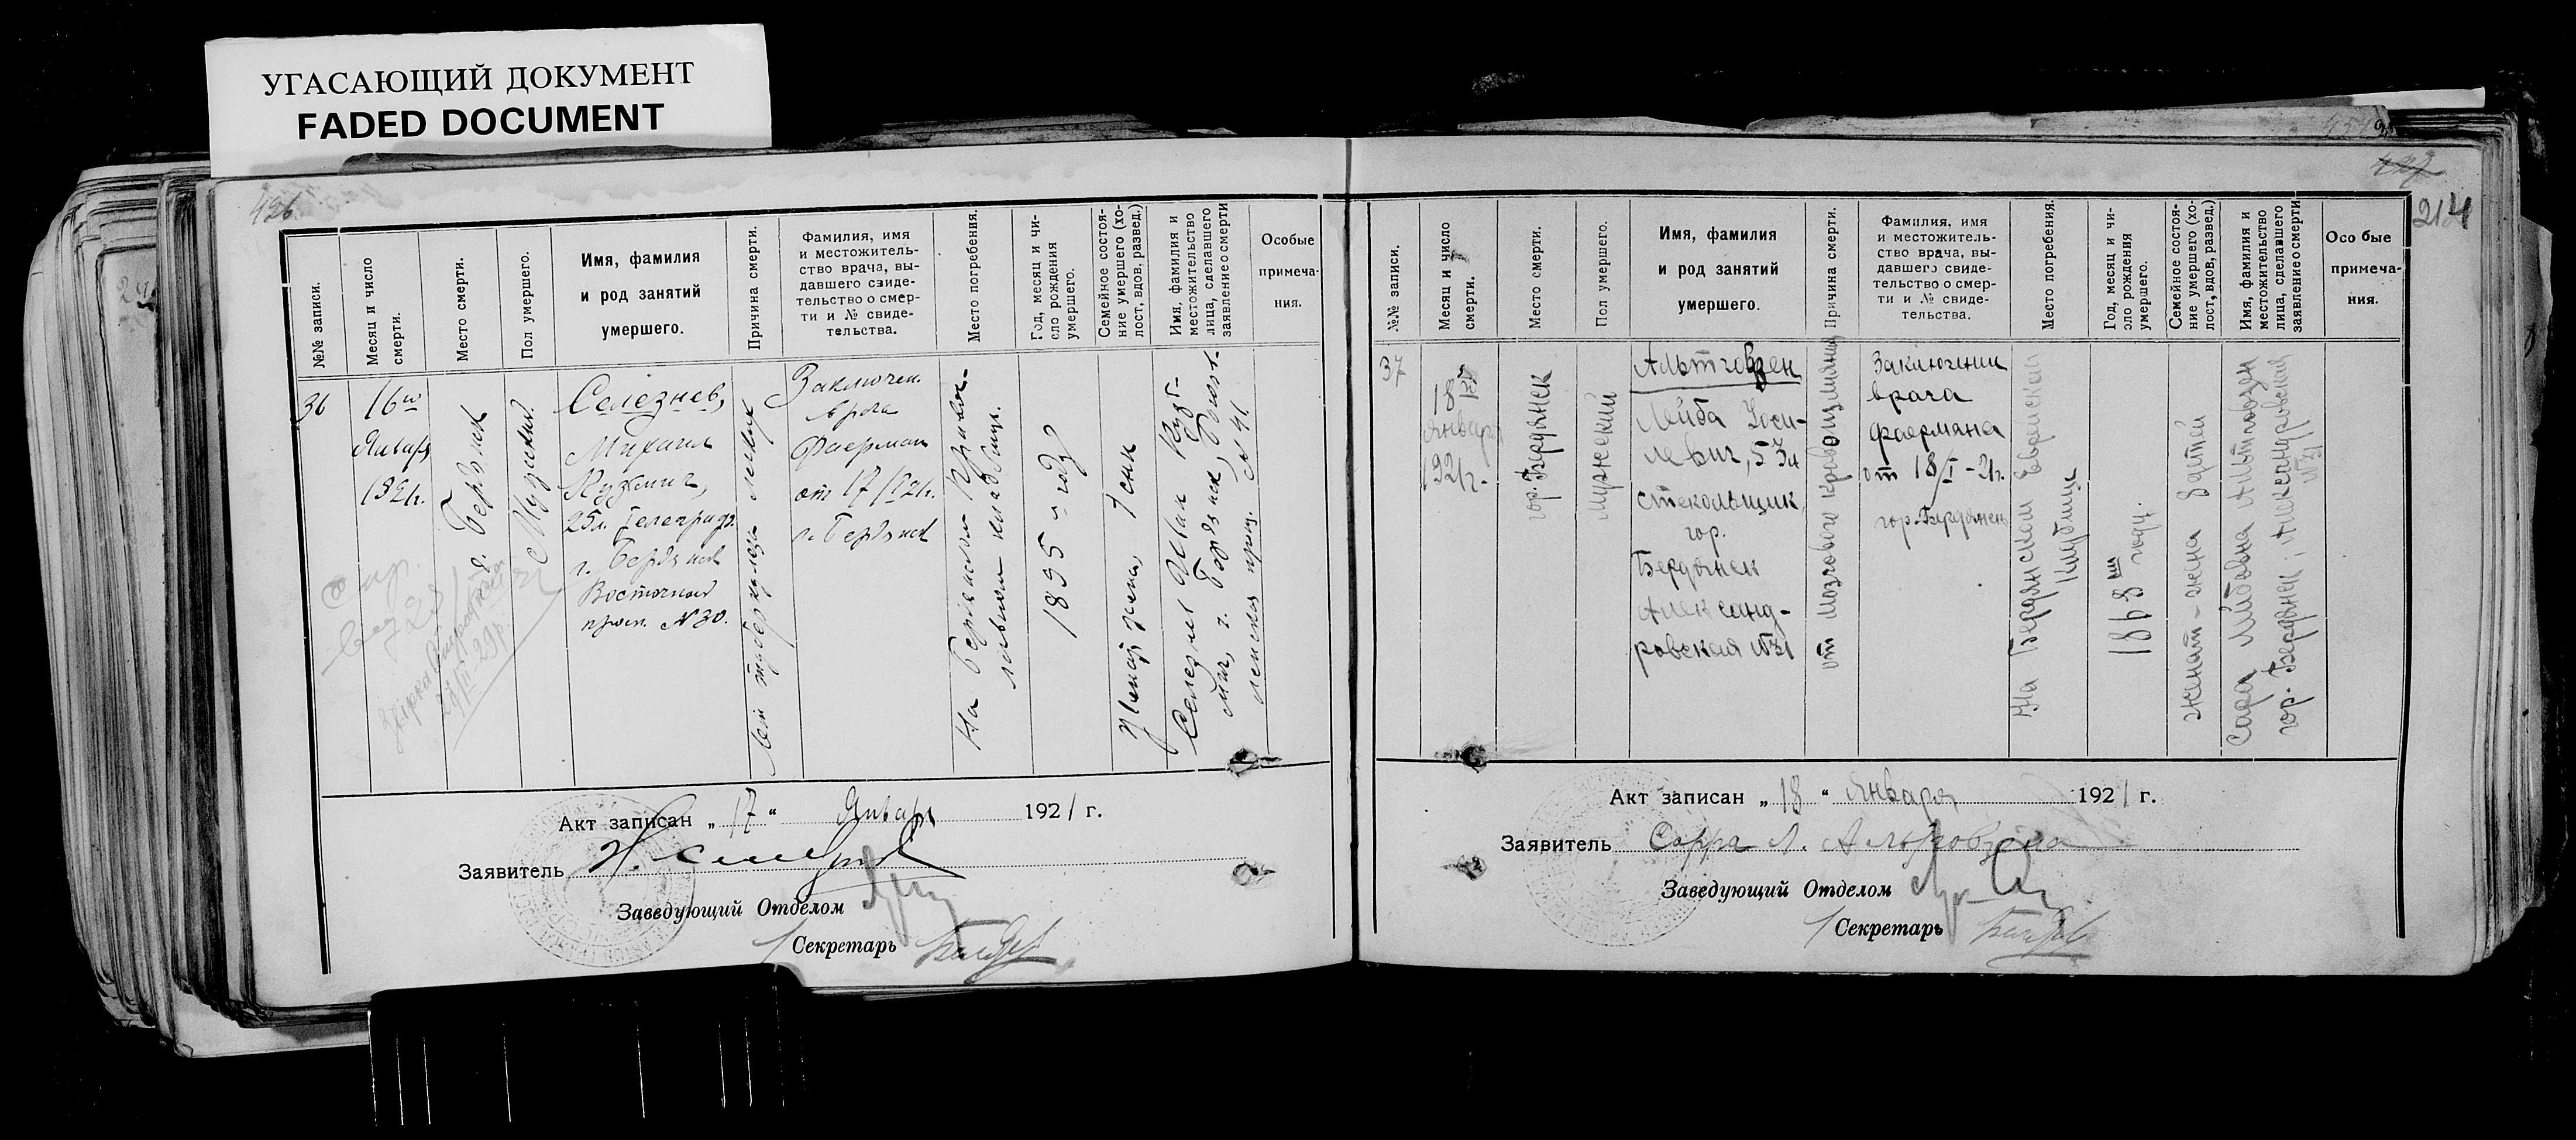 УГАСАЮЩИЙ ДОКУМЕНТ
FADED DOCUMENT
426
№№ записи.
Месяц и число
смерти.
Место смерти.
Пол умершего.
Имя, фамилия
и род занятий
умершего.
Причина смерти.
Фамилия, имя
и местожитель-
ство врача, вы-
давшего свиде-
тельство о смер-
ти и № свиде-
тельства.
Место погребения.
Год, месяц и чи-
сло рождения
умершего.
Семейное состоя-
ние умершего (хо-
лост, вдов, развед.)
Имя, фамилия и
местожительство
лица, сделавшего
заявление о смерти
Особые
примеча-
ния.
36
16го
Января
1921г.
г. Бердянск
Мужской
Селезнев,
Михаил
Кузьмич,
25л. Телеграф.
г. Бердянск
Восточный
просп. № 30.
От туберкулеза легких
Заключен.
врача
Фаерман
от 17/I 21г.
г. Бердянск
На Бердянском Правос-
лавном кладбище.
1895 - году
Женат, жена, 1 сын
Селезнев Исаак Кузь-
мич, г. Бердянск, Вост.
просп. № 41
29/II 29 р.
Акт записан „ 17 “ Января 1921 г.
Заявитель
Заведующий Отделом
Секретарь
427
214
№№ записи.
Месяц и число
смерти.
Место смерти.
Пол умершего.
Имя, фамилия
и род занятий
умершего.
Причина смерти.
Фамилия, имя
и местожитель-
ство врача, вы-
давшего свиде-
тельство о смер-
ти и № свиде-
тельства.
Место погребения.
Год, месяц и чи-
сло рождения
умершего.
Семейное состоя-
ние умершего (хо-
лост, вдов, развед.)
Имя, фамилия и
местожительство
лица, сделавшего
заявление о смерти
Особые
примеча-
ния.
37
18го
Января
1921г.
гор. Бердянск
Мужской
Альтговзен
Лейба Иоси-
левич, 53л
стекольщик
гор.
Бердянск
Александ-
ровская №31
от Мозгового кровоизлияния
Заключении
врача
Фаермана
от 18/I - 21г.
гор. Бердянск
На Бердянском Еврейском
Кладбище
1868 му году.
Женат - жена 8 детей
Сара Лейбовна Альтговзен
гор. Бердянск, Александровская
№31
Акт записан „ 18 “ Января 1921 г.
Заявитель Сарра Л. Альтговзена
Заведующий Отделом
Секретарь